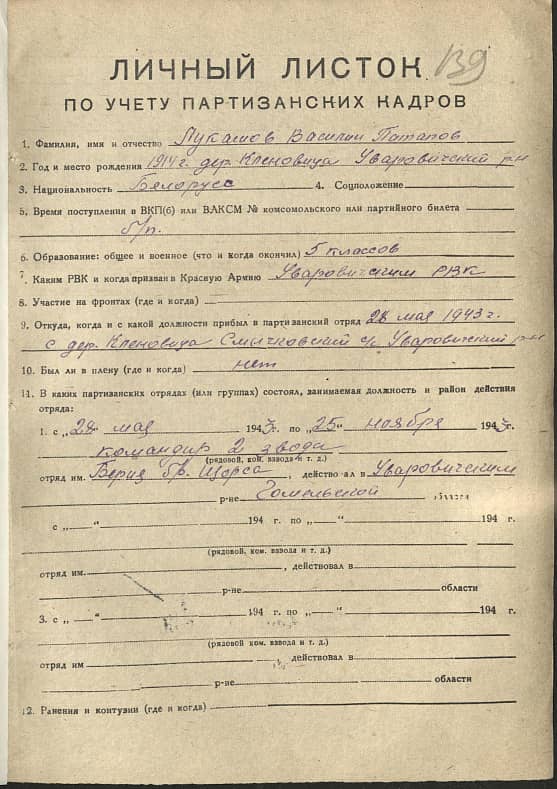 139
ЛИЧНЫЙ ЛИСТОК
ПО УЧЕТУ ПАРТИЗАНСКИХ КАДРОВ
1. Фамилия, имя и отчество Лукашов Василий Потапов
2. Год и место рождения 1914 г. дер. Кленовица Уваровичский р-н
3. Национальность Белорусс 4. Соцположение
5. Время поступления в ВКП(б) или ВЛКСМ № комсомольского или партийного билета
б/п.
6. Образование: общее и военное (что и когда окончил) 5 классов
7. Каким РВК и когда призван в Красную Армию Уваровичским РВК
8. Участие на фронтах (где и когда)
9. Откуда, когда и с какой должности прибыл в партизанский отряд 28 мая 1943 г.
с дер. Кленовица Смычковский с/с Уваровичский р-н
10. Был ли в плену (где и когда) нет
11. В каких партизанских отрядах (или группах) состоял, занимаемая должность и район действия
отряда:
1. с „28" мая 1943 г. по „25" ноября 1943 г.
командир 2 звода
(рядовой, ком. взвода и т. д.)
отряд им. Берия бр. Щорса, действовал в Уваровичским
р-не Гомельской области
с „ — " 194 г. по „ — " 194 г.
(рядовой, ком. взвода и т. д.)
отряд им. , действовал в
р-не области
3. с „ — " 194 г. по „ — " 194 г.
(рядовой, ком. взвода и т. д.)
отряд им. действовал в
р-не области
12. Ранения и контузии (где и когда)